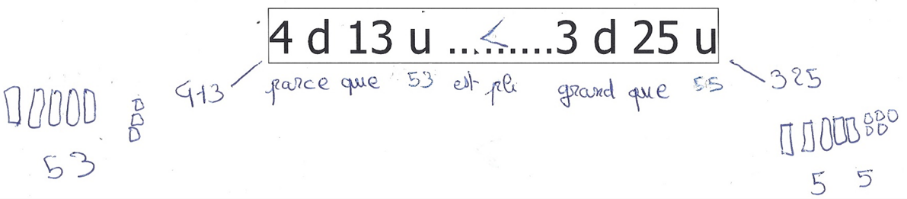 4 d 13 u ...<......3 d 25 u
413 parce que 53 est pli grand que 55 325
53 5 5